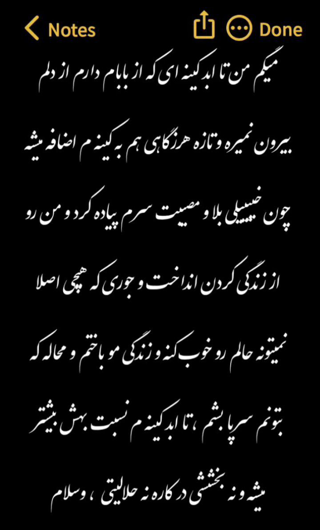 Notes
Done
میگم من تا ابد کینه ای که از بابام دارم از دلم
بیرون نمیره و تازه هرزگاهی هم به کینه م اضافه میشه
چون خیییلی بلا و مصیبت سرم پیاده کرد و من رو
از زندگی کردن انداخت و جوری که هیچی اصلا
نمیتونه حالم رو خوب کنه و زندگی مو باختم و محاله که
بتونم سرپا بشم ، تا ابد کینه م نسبت بهش بیشتر
میشه و نه بخششی در کاره نه حلالیتی ، وسلام